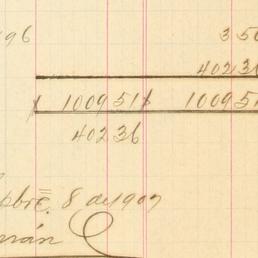 196 350
40236
$ 100951 $ 100951
40236
pbre. 8 de 1907
mán